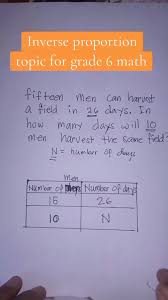 Inverse proportion
topic for grade 6 math
fifteen men can harvest
a field in 26 days. In
how many days will 10
men harvest the same field?
N = number of days
men
Number of men Number of days
15 26
10 N